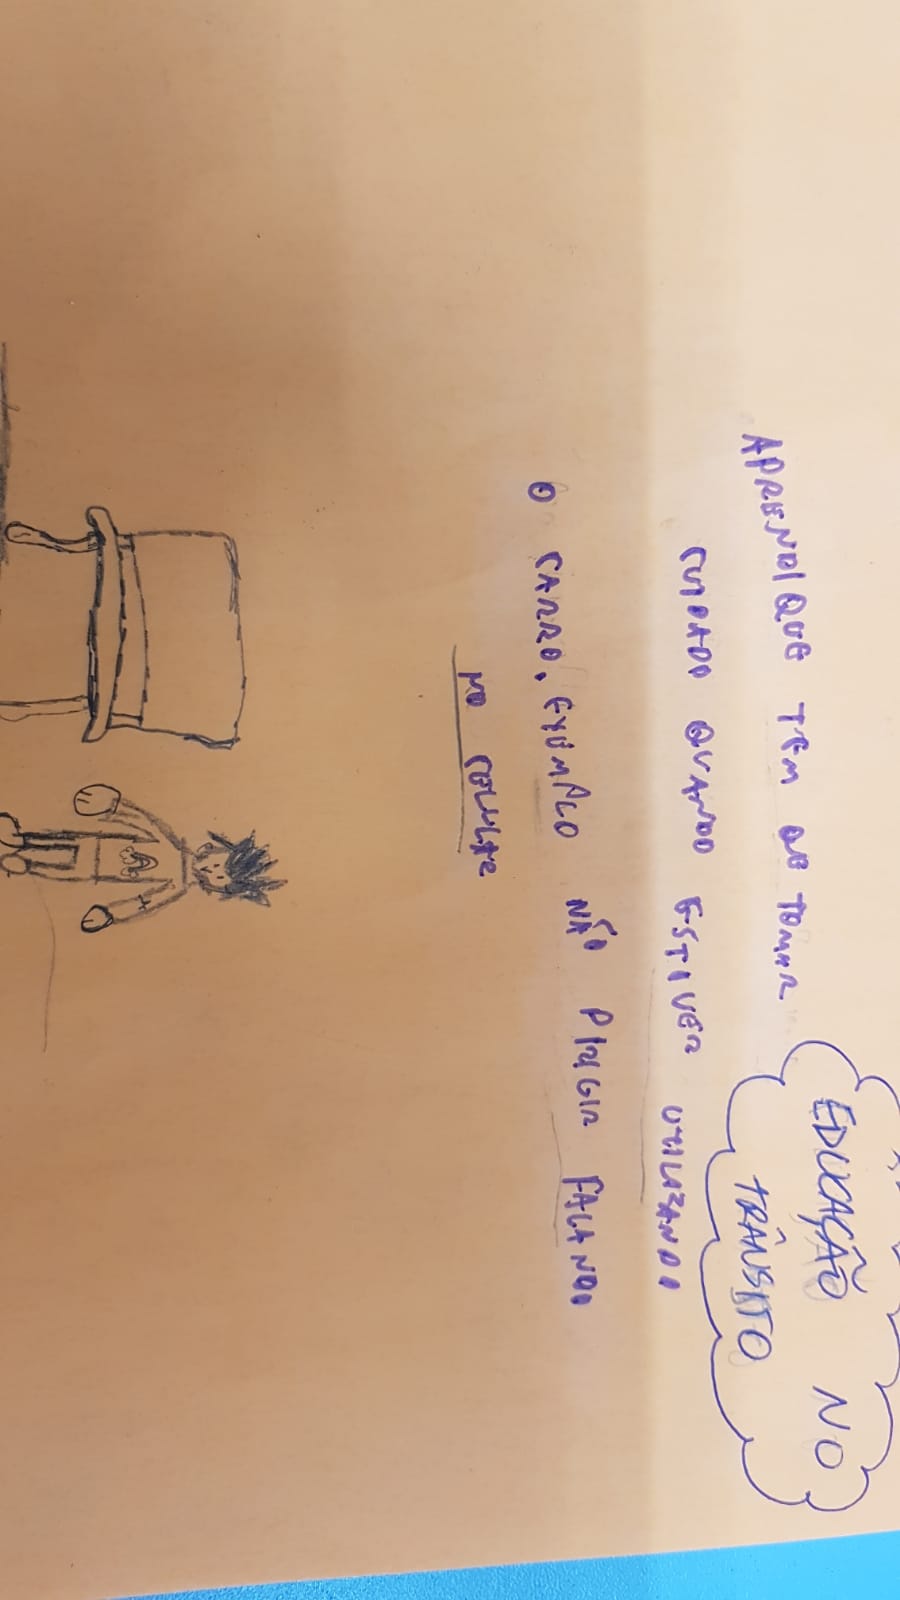 EDUCAÇÃO NO
TRÂNSITO
APRENDI QUE TEM DE TOMAR
CUIDADO QUANDO ESTIVER UTILIZANDO
O CARRO. EXEMPLO NÃO DIRIGIR FALANDO
NO CELULAR